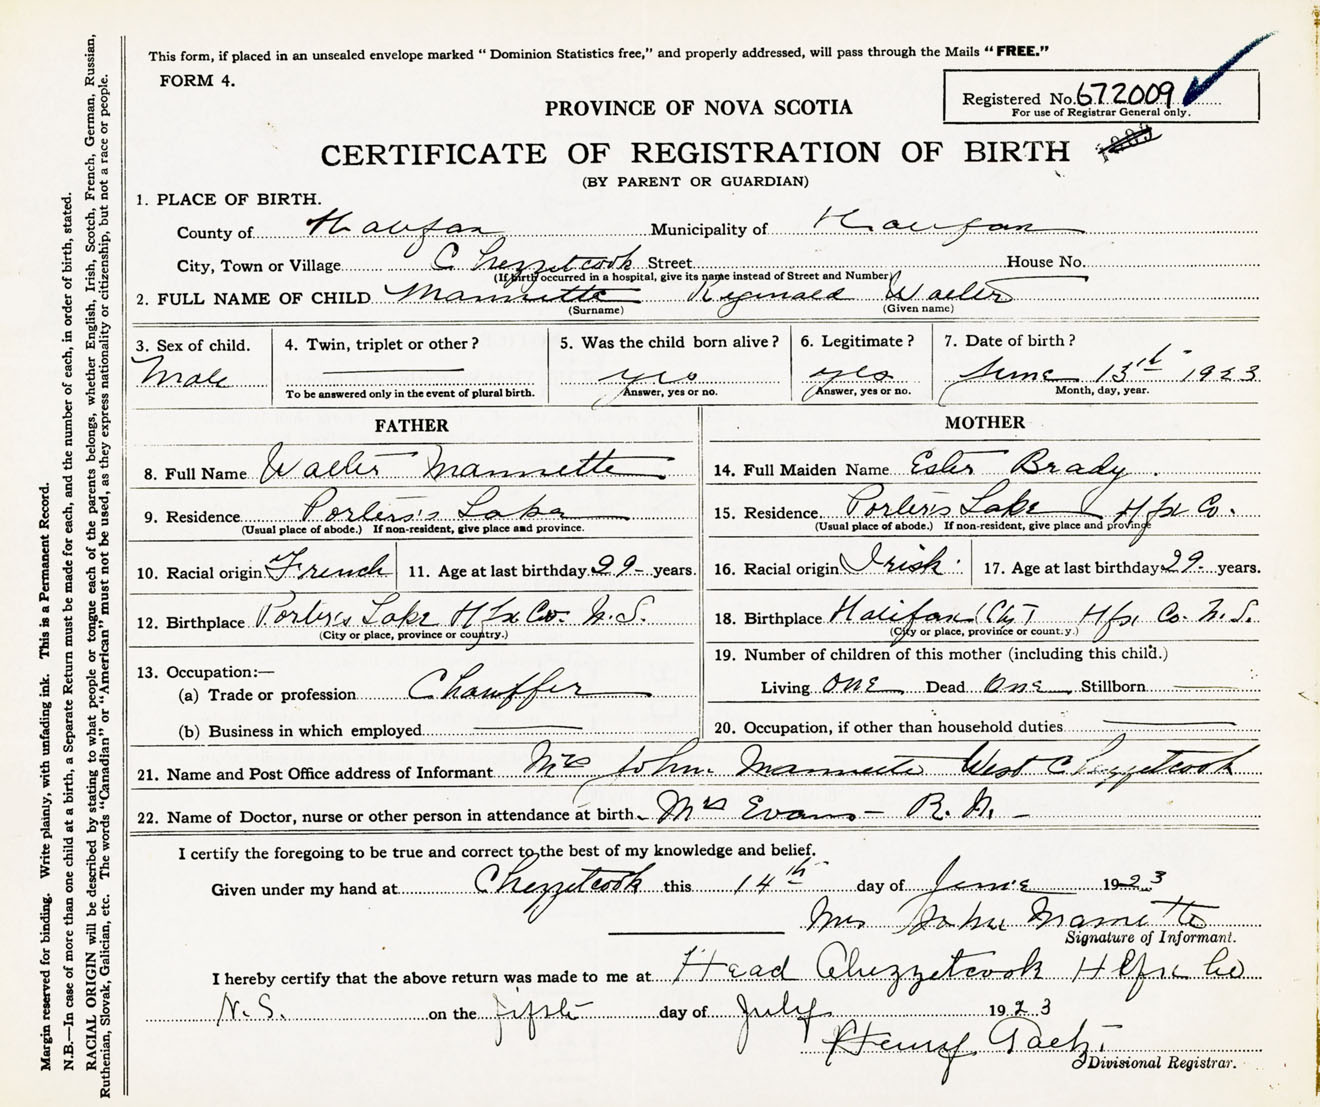 This form, if placed in an unsealed envelope marked “ Dominion Statistics free,” and properly addressed, will pass through the Mails “ FREE.”
FORM 4.
Registered No. 672009
For use of Registrar General only.
PROVINCE OF NOVA SCOTIA
CERTIFICATE OF REGISTRATION OF BIRTH
(BY PARENT OR GUARDIAN)
1. PLACE OF BIRTH.
County of Halifax Municipality of Halifax
City, Town or Village Chezzetcook Street House No.
(If birth occurred in a hospital, give its name instead of Street and Number)
2. FULL NAME OF CHILD Mannette Reginald Walter
(Surname) (Given name)
3. Sex of child. 4. Twin, triplet or other? 5. Was the child born alive? 6. Legitimate? 7. Date of birth?
Male yes yes June 13th 1923
To be answered only in the event of plural birth. Answer, yes or no. Answer, yes or no. Month, day, year.
FATHER
8. Full Name Walter Mannette
9. Residence Porters's Lake
(Usual place of abode.) If non-resident, give place and province.
10. Racial origin French 11. Age at last birthday 29 years.
12. Birthplace Porter's Lake Hfx Co. N.S.
(City or place, province or country.)
13. Occupation:—
(a) Trade or profession Chauffer
(b) Business in which employed
MOTHER
14. Full Maiden Name Ester Brady.
15. Residence Porter's Lake Hfx Co.
(Usual place of abode.) If non-resident, give place and province
16. Racial origin Irish. 17. Age at last birthday 29 years.
18. Birthplace Halifax City Hfx Co. N.S.
(City or place, province or county.)
19. Number of children of this mother (including this child.)
Living one Dead One Stillborn
20. Occupation, if other than household duties
21. Name and Post Office address of Informant Mrs John Mannette West Chezzetcook
22. Name of Doctor, nurse or other person in attendance at birth Mrs Evans – R.N. –
I certify the foregoing to be true and correct to the best of my knowledge and belief.
Given under my hand at Chezzetcook this 14th day of June 1923
Mrs John Mannette
Signature of Informant.
I hereby certify that the above return was made to me at Head Chezzetcook Hfx Co
N.S. on the fifth day of July 1923
Henry
Divisional Registrar.
Margin reserved for binding. Write plainly, with unfading ink. This is a Permanent Record.
N.B.—In case of more than one child at a birth, a Separate Return must be made for each, and the number of each, in order of birth, stated.
RACIAL ORIGIN will be described by stating to what people or tongue each of the parents belongs, whether English, Irish, Scotch, French, German, Russian,
Ruthenian, Slovak, Galician, etc. The words “Canadian” or “American” must not be used, as they express nationality or citizenship, but not a race or people.